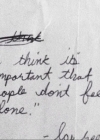 think it's
mportant that
ople don't feel
lone."